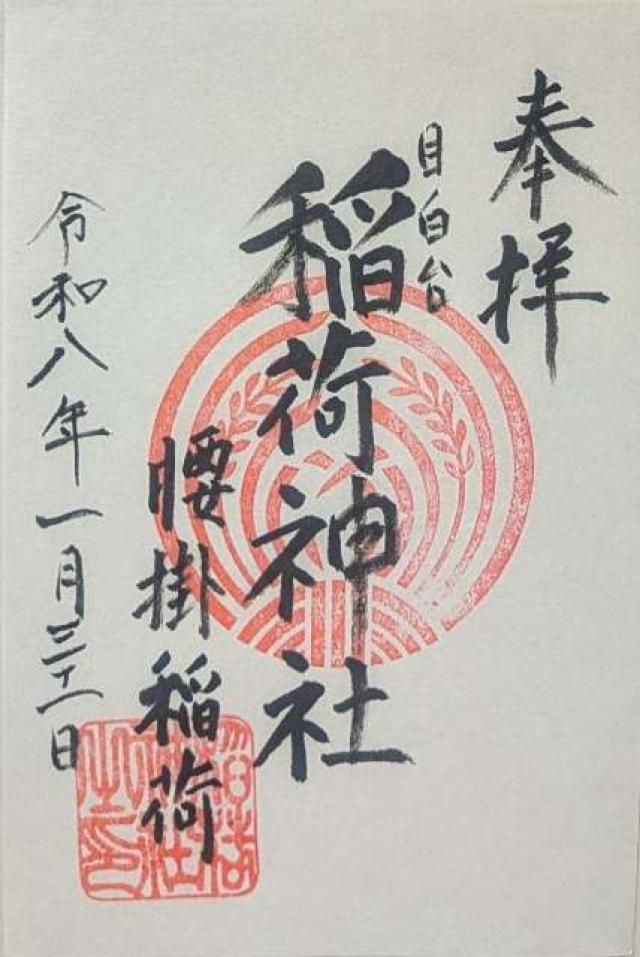 奉拝
目白台
稲荷神社
腰掛稲荷
令和八年一月三十一日